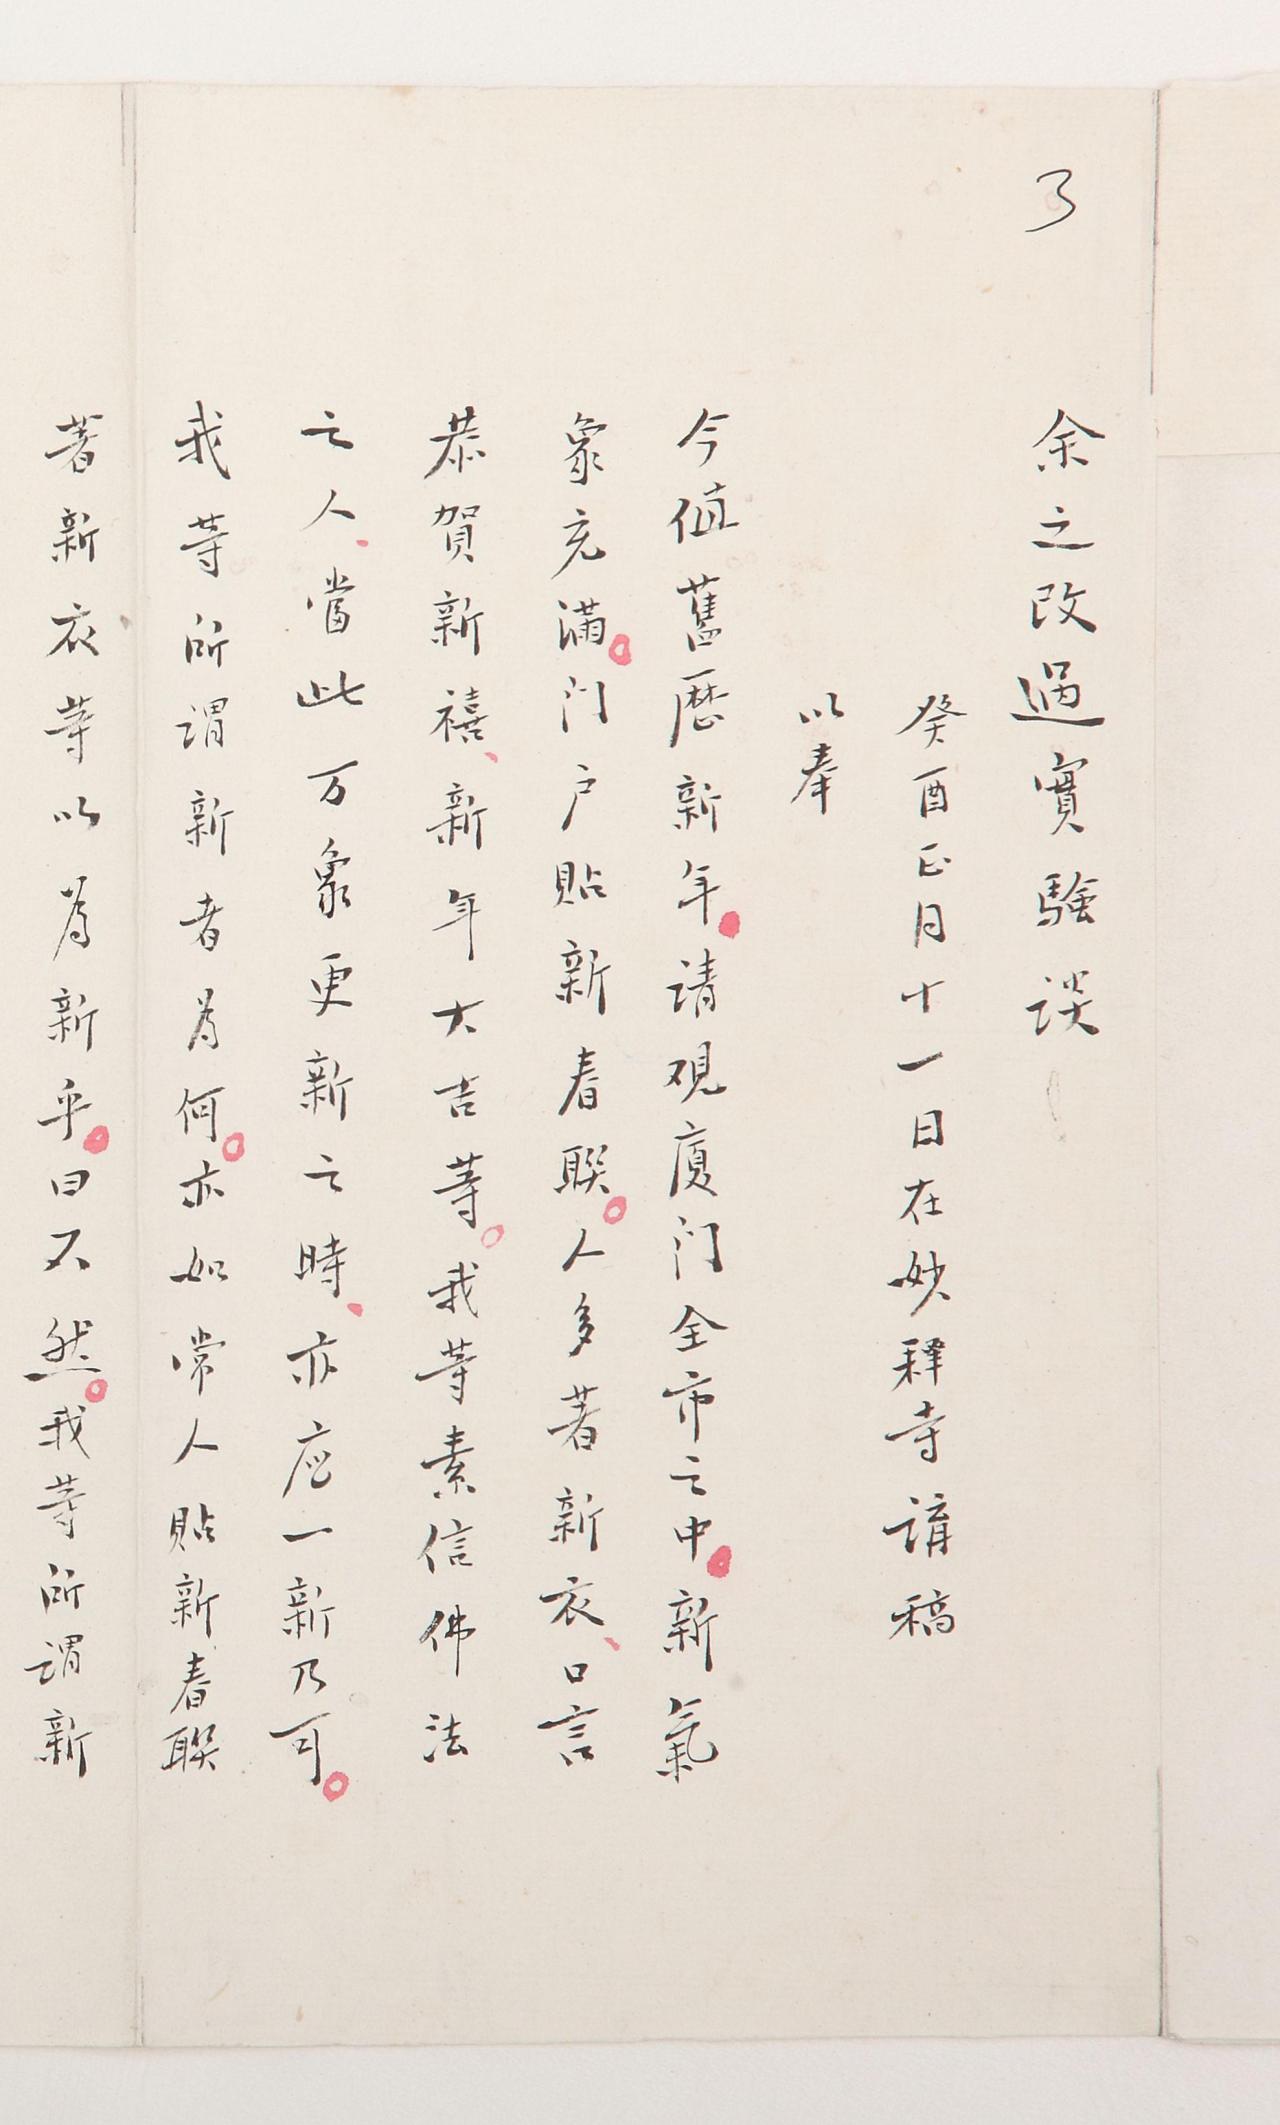 3
余之改過實驗談
癸酉正月十一日在妙释寺講稿
以奉
今值舊歷新年。请观厦门全市之中。新氣
象充满。门户贴新春联。人多著新衣、口言
恭賀新禧、新年大吉等。我等素信佛法
之人、當此万象更新之時、亦应一新乃可。
我等所谓新者为何。亦如常人貼新春联
著新衣等以为新乎。曰不然。我等所谓新